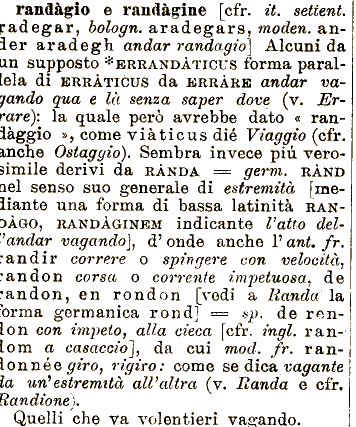 randàgio e randàgine [cfr. it. settent.
radegar, bologn. aradegars, moden. an-
der aradegh andar randagio] Alcuni da
un supposto *ERRANDÀTICUS forma paral-
lela di ERRÀTICUS da ERRÀRE andar va-
gando qua e là senza saper dove (v. Er-
rare): la quale però avrebbe dato « ran-
dàggio », come viàticus dié Viaggio (cfr.
anche Ostaggio). Sembra invece piú vero-
simile derivi da RÀNDA = germ. RÀND
nel senso suo generale di estremità [me-
diante una forma di bassa latinità RAN-
DÀGO, RANDÀGINEM indicante l'atto del-
l'andar vagando], d'onde anche l'ant. fr.
randir correre o spingere con velocità,
randon corsa o corrente impetuosa, de
randon, en rondon [vedi a Randa la
forma germanica rond] = sp. de ren-
don con impeto, alla cieca [cfr. ingl. ran-
dom a casaccio], da cui mod. fr. ran-
donnée giro, rigiro: come se dica vagante
da un'estremità all'altra (v. Randa e cfr.
Randione).
Quelli che va volentieri vagando.